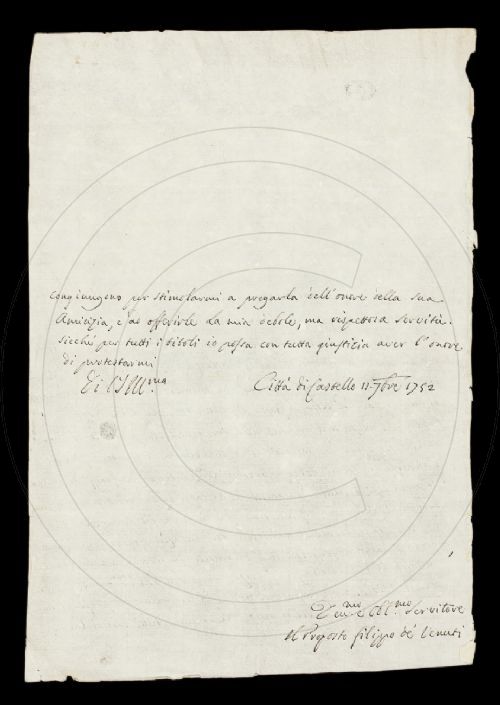 congiungono per stimolarmi a pregarla dell'onore della sua
Amicizia, e ad offerirle la mia debole, ma rispettosa servitù.
sicché per tutti i titoli io possa con tutta giustizia aver l'onore
di protestarmi
Di V.S. Ill.ma
Città di Castello 11. 7bre 1752
Dev.mo Obl.mo Servitore
Il Proposto Filippo de' Venuti